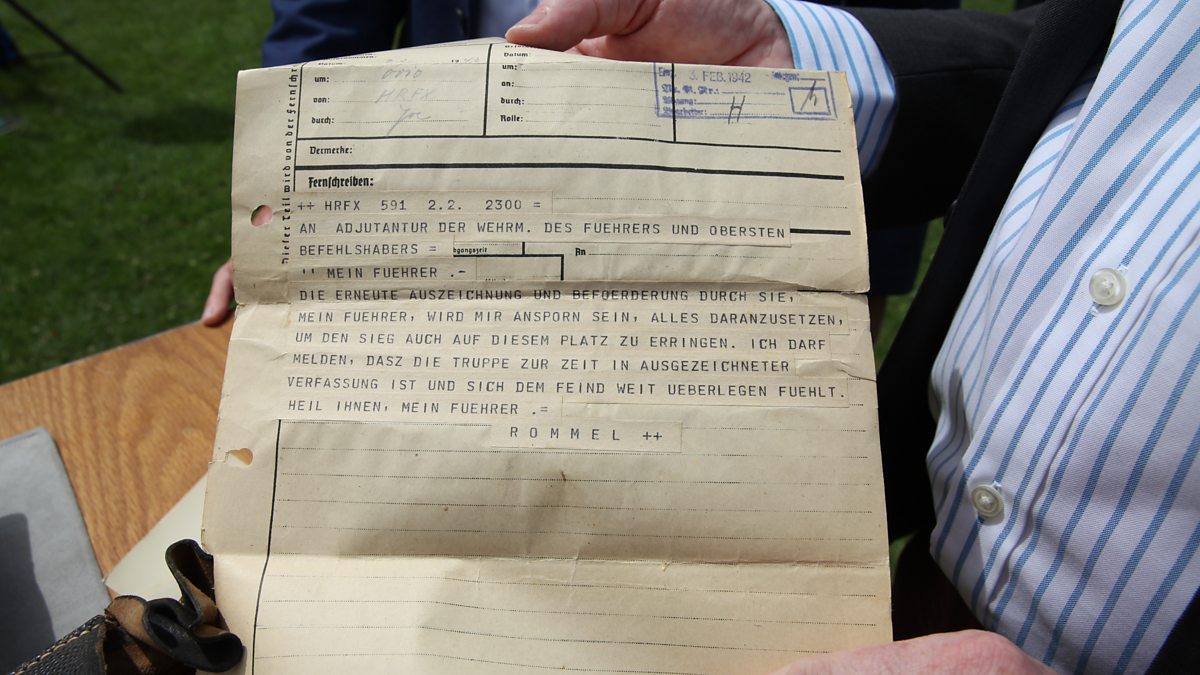 Datum:
um: 0010
von: HRFX
durch:
Datum:
um:
an:
durch:
Rolle:
3. FEB. 1942
H
Dieser Teil wird von der Fernschr
Vermerke:
Fernschreiben:
++ HRFX 591 2.2. 2300 =
AN ADJUTANTUR DER WEHRM. DES FUEHRERS UND OBERSTEN
BEFEHLSHABERS =
bgangszeit
An
'' MEIN FUEHRER .-
DIE ERNEUTE AUSZEICHNUNG UND BEFOERDERUNG DURCH SIE,
MEIN FUEHRER, WIRD MIR ANSPORN SEIN, ALLES DARANZUSETZEN,
UM DEN SIEG AUCH AUF DIESEM PLATZ ZU ERRINGEN. ICH DARF
MELDEN, DASZ DIE TRUPPE ZUR ZEIT IN AUSGEZEICHNETER
VERFASSUNG IST UND SICH DEM FEIND WEIT UEBERLEGEN FUEHLT.
HEIL IHNEN, MEIN FUEHRER .=
ROMMEL ++